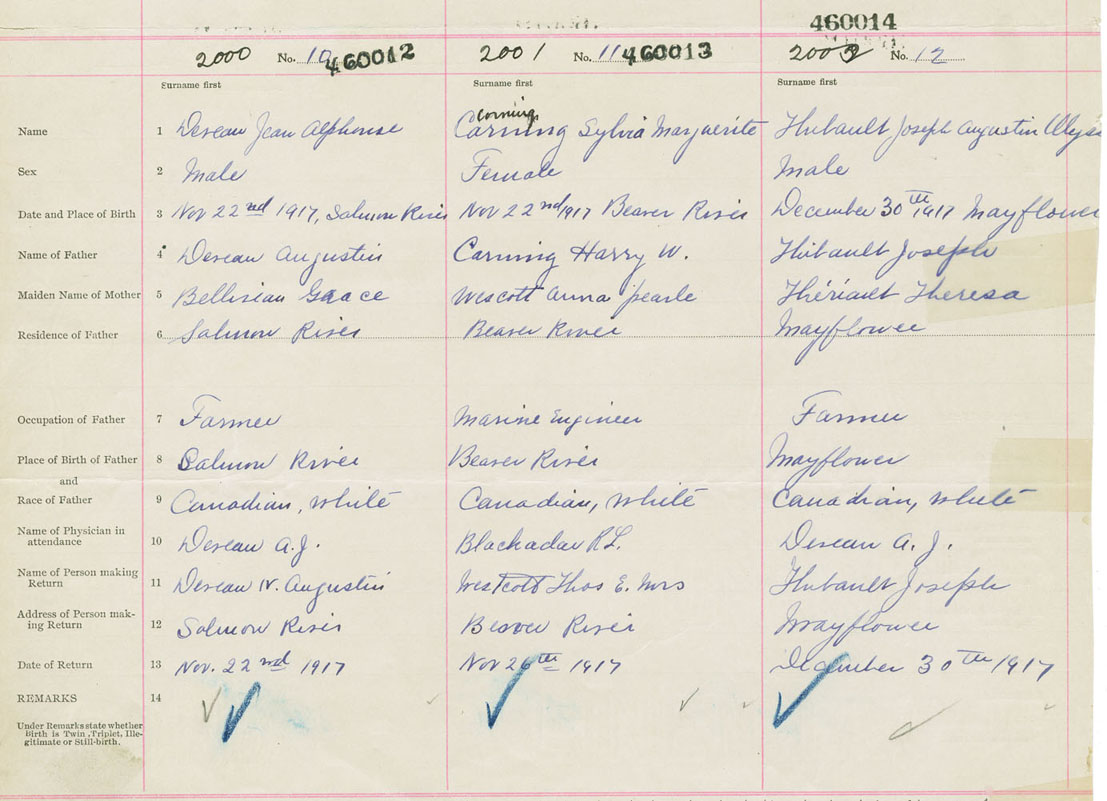 460014
2000 No. 10 460012 2001 No. 11 460013 2002 No. 12
Surname first Surname first Surname first
corning
Name 1 Deveau Jean Alphonse Carning Sylvia Marguerite Thibault Joseph Augustin
Sex 2 Male Female Male
Date and Place of Birth 3 Nov 22nd 1917, Salmon River Nov 22nd 1917 Beaver River December 30th 1917 Mayflower
Name of Father 4 Deveau Augustin Carning Harry W. Thibault Joseph
Maiden Name of Mother 5 Grace Wescott Anna Pearle Thériault Theresa
Residence of Father 6 Salmon River Beaver River Mayflower
Occupation of Father 7 Farmer Marine Engineer Farmer
Place of Birth of Father 8 Salmon River Beaver River Mayflower
and
Race of Father 9 Canadian, white Canadian, white Canadian, white
Name of Physician in
attendance 10 Deveau A.J. Blackadar R.L. Deveau A.J.
Name of Person making
Return 11 Deveau N. Augustin Westcott Thos E. Mrs Thibault Joseph
Address of Person mak-
ing Return 12 Salmon River Beaver River Mayflower
Date of Return 13 Nov. 22nd 1917 Nov 26th 1917 December 30th 1917
REMARKS 14
Under Remarks state whether
Birth is Twin, Triplet, Ille-
gitimate or Still-birth.